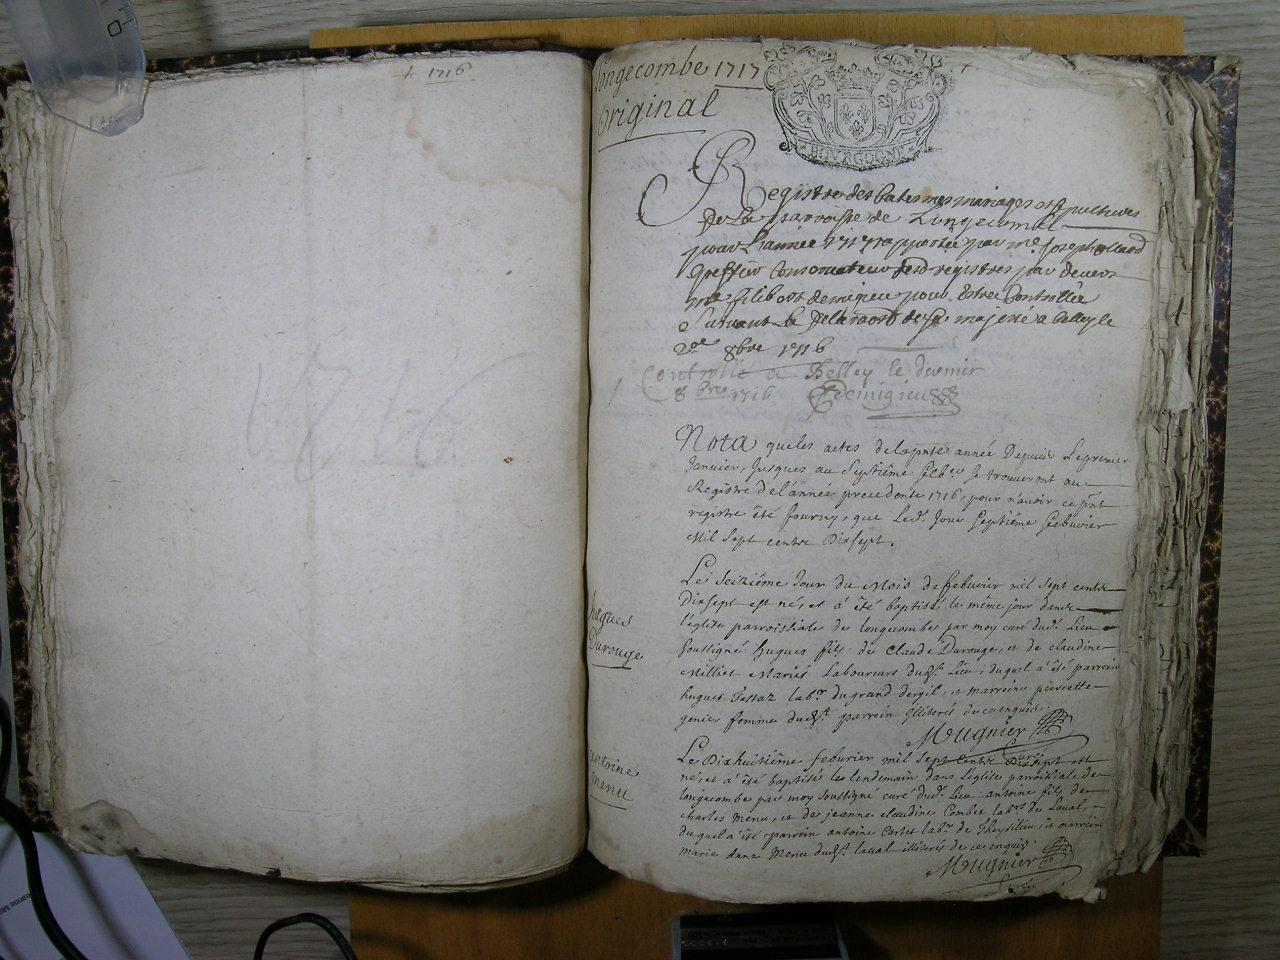 1716
1716
Longecombe 1717
Original
BOVRGOGNE
Registre des batesmes mariages et sepultures
de la parroisse de Longecombe
pour l'année 1717 apportée par me Joseph
greffier Conservateur desd registres par devers
me filibert demigieu pour Estre Controllée
Suivant la de Sa majesté a belley le
8bre 1716
Controllé a Belley le dernier
8bre 1716 Demigieu
Nota que les actes de la pnte année Depuis le premier
Janvier, jusques au Septième feber se trouveront au
Registre de l'année precedente 1716, pour n'avoir ce pnt
registre été fourny, que led. Jour Septième febuvrier
Mil Sept centz Dixsept.
hugues
Durouge
Le Seizième Jour du Mois de febuvrier mil Sept centz
Dixsept est né, et a été baptisé le même jour dans
l'église parroissiale de longecombe par moy curé dudt. Lieu
soussigné hugues fils de Claude Durouge, et de claudine
Milliet Mariés Laboureurs dudt. Lieu, duquel a été parrein
hugues Tessaz labr. du grand dergil, et marreine pierrette
genier femme dudt. parrein illiterés de ce enquis.
Mugnier
Curé
antoine
menu
Le Dixhuitième febuvrier mil Sept centz Dixsept est
né, et a été baptisé le lendemain dans l'église parroissiale de
longecombe par moy soussigné curé dudt. Lieu antoine fils de
charles Menu, et de jeanne claudine Combet labrs. de Laval,
duquel a été parrein antoine Cartet labr. de et marreine
marie Anne Menu dudt. laval illiterés de ce enquis.
Mugnier
Curé